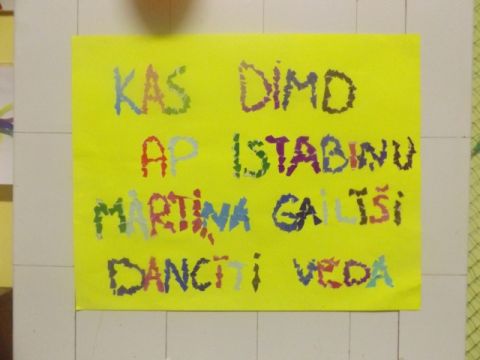 KAS DIMD
AP ISTABIŅU
MĀRTIŅA GAILĪŠI
DANCĪTI VEDA